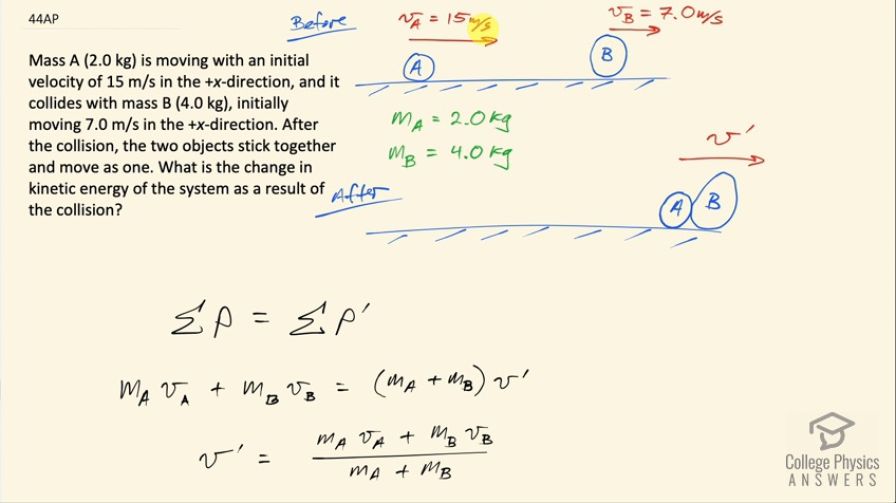 44AP
Mass A (2.0 kg) is moving with an initial
velocity of 15 m/s in the +x-direction, and it
collides with mass B (4.0 kg), initially
moving 7.0 m/s in the +x-direction. After
the collision, the two objects stick together
and move as one. What is the change in
kinetic energy of the system as a result of
the collision?
Before
v_A = 15 m/s
v_B = 7.0 m/s
A
B
m_A = 2.0 kg
m_B = 4.0 kg
v'
After
A B
Σp = Σp'
m_A v_A + m_B v_B = (m_A + m_B) v'
v' = (m_A v_A + m_B v_B) / (m_A + m_B)
College Physics
ANSWERS